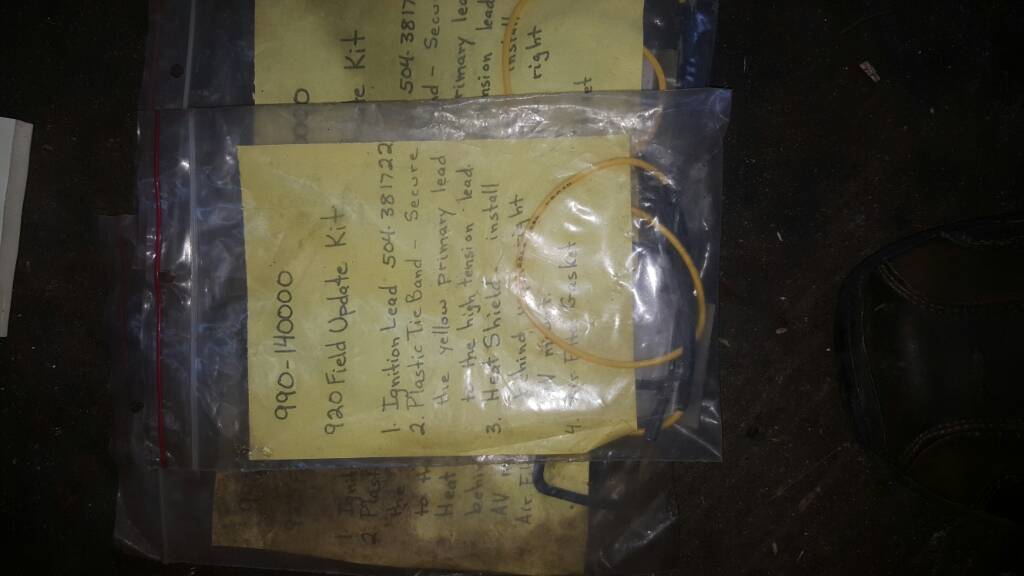 990-140000
920 Field Update Kit
1. Ignition Lead 504·381722
2. Plastic Tie Band - Secure
the yellow primary lead
to the high tension lead.
3. Heat Shield - install
behind right
AV
4. Air Gasket
e Kit
504·3817
Secu
rimary lea
nsion lead
install
right
et
0000
1. Ignit
2. Plas
the
to th
Heat
behi
AV
Air Fi